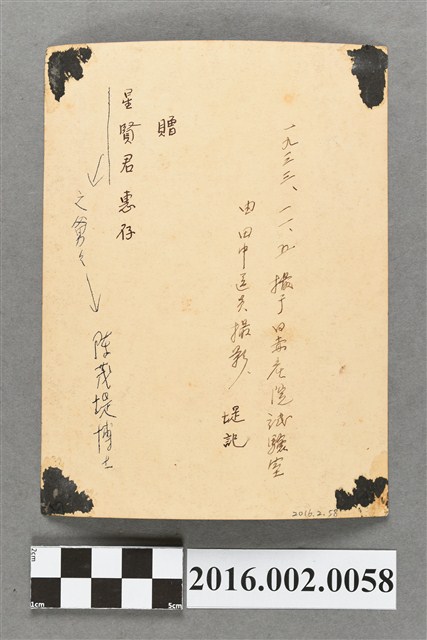 一九三三、一一、九 攝于日赤産院試驗室
由田中医員攝影、堤記
贈
星賢君 惠存
之舅々
陳茂堤博士
2016.2.58
2cm
1cm
5cm
2016.002.0058